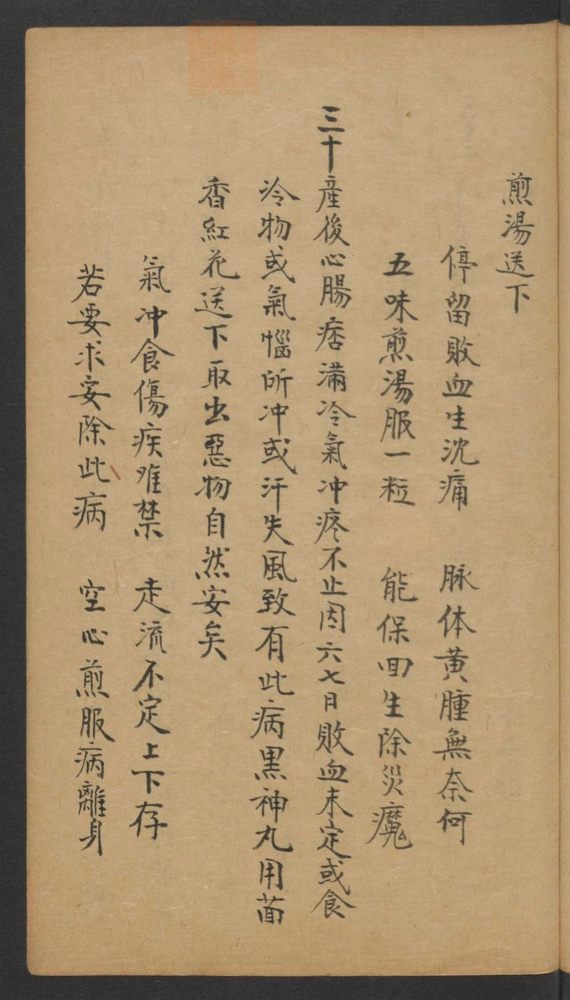 煎湯送下
停留敗血生沈痛　脉体黃腫無奈何
五味煎湯服一粒　能保回生除災魔
三十產後心腸痞滿冷氣冲疼不止因六七日敗血未定或食
冷物或氣惱所冲或汗失風致有此病黑神丸用茴
香紅花送下取出惡物自然安矣
氣冲食傷疾难禁　走流不定上下存
若要求安除此病　空心煎服病離身